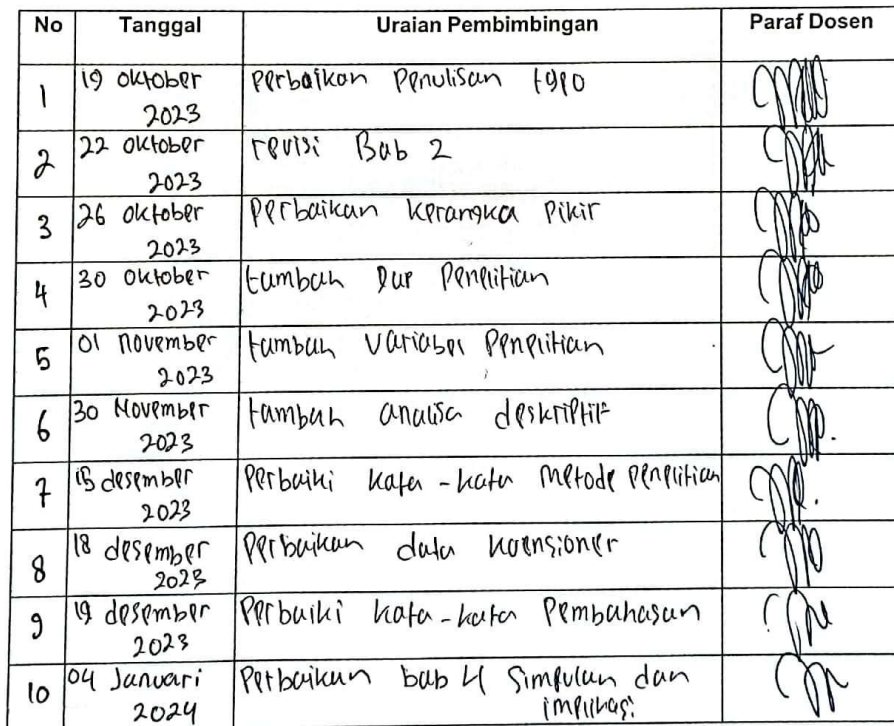 No Tanggal Uraian Pembimbingan Paraf Dosen
1 19 oktober 2023 perbaikan penulisan typo
2 22 oktober 2023 revisi Bab 2
3 26 oktober 2023 perbaikan kerangka pikir
4 30 oktober 2023 tambah penelitian
5 01 november 2023 tambah variabel penelitian
6 30 November 2023 tambah analisa deskriptif
7 15 desember 2023 Perbaiki kata-kata metode penelitian
8 18 desember 2023 perbaikan data koensioner
9 19 desember 2023 Perbaiki kata-kata Pembahasan
10 04 Januari 2024 Perbaikan bab 4 simpulan dan implikasi